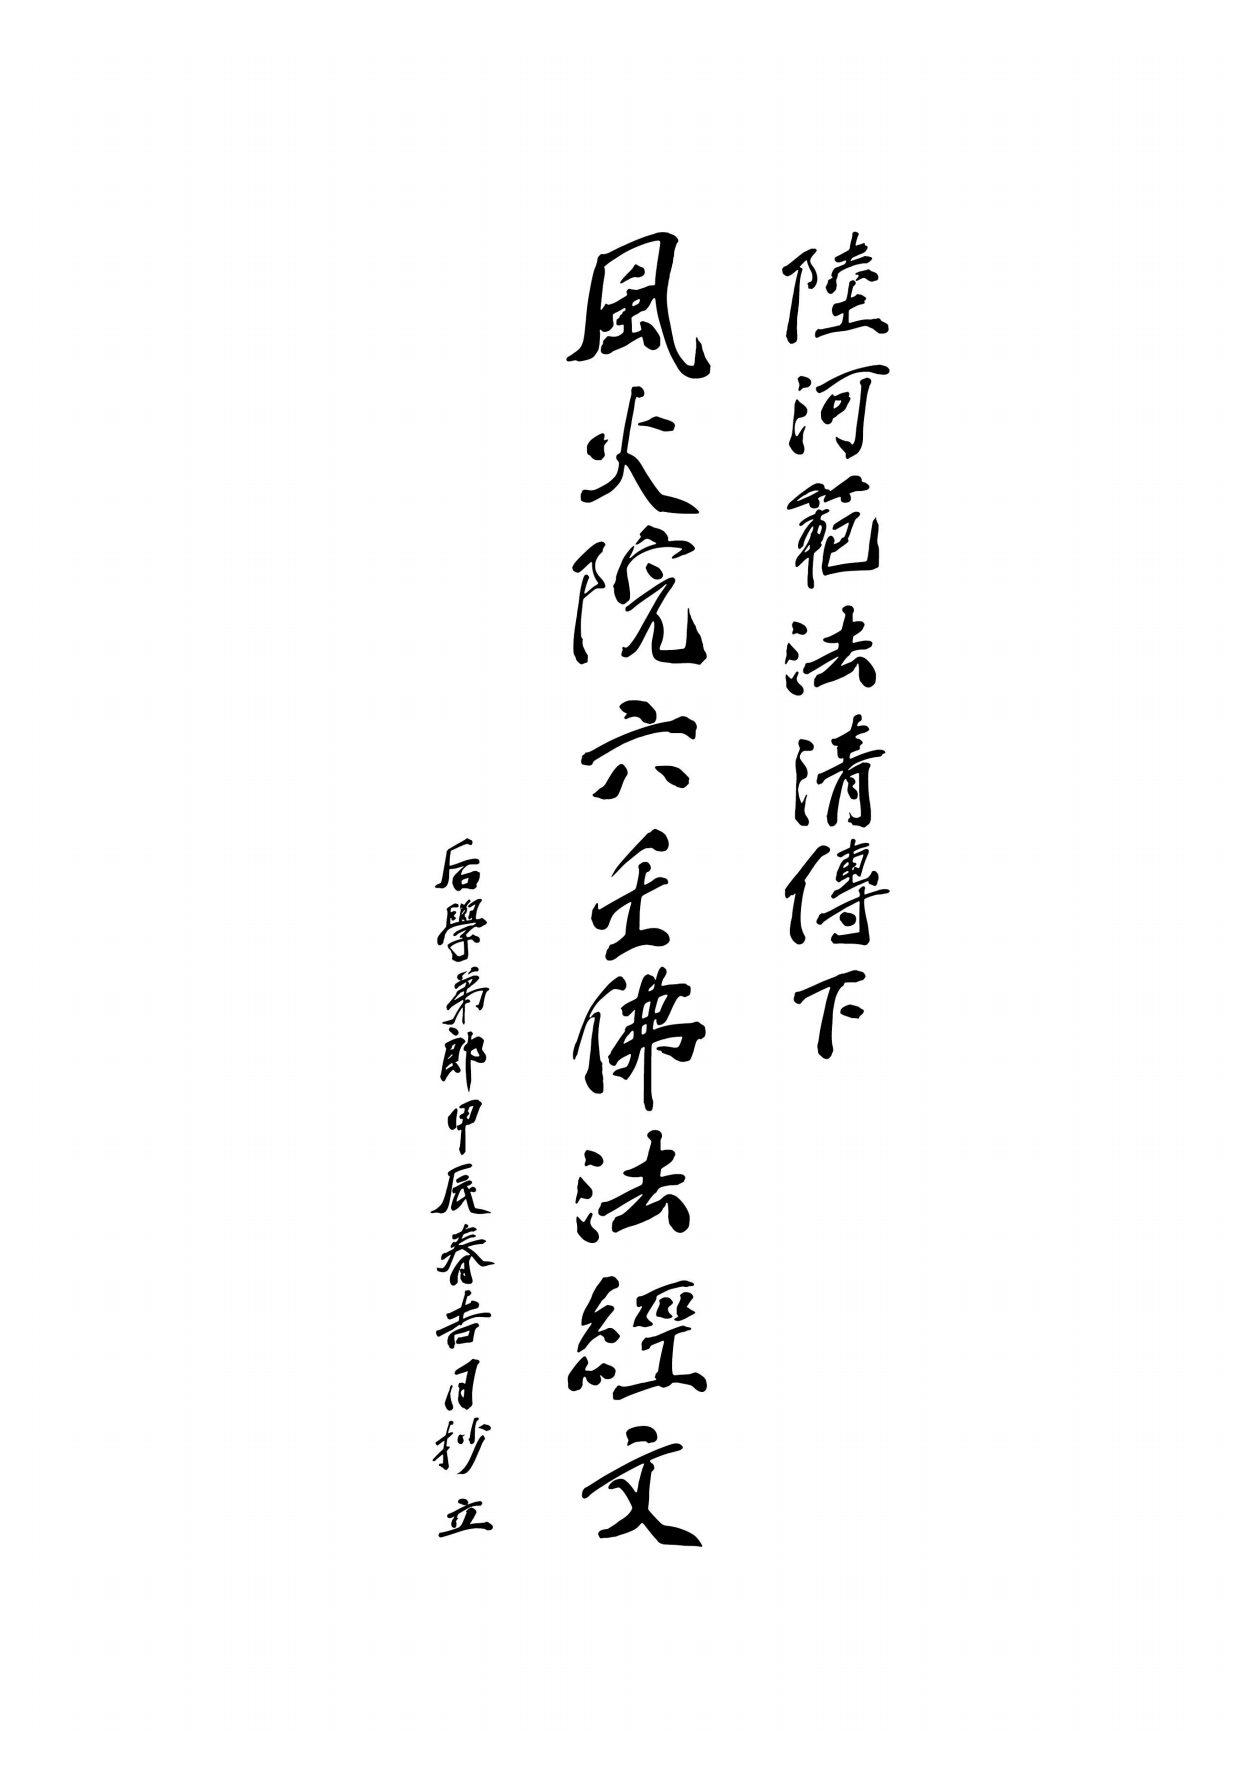 陸河範法清傳下
風火院六壬佛法經文
后學弟郎甲辰春吉月抄立